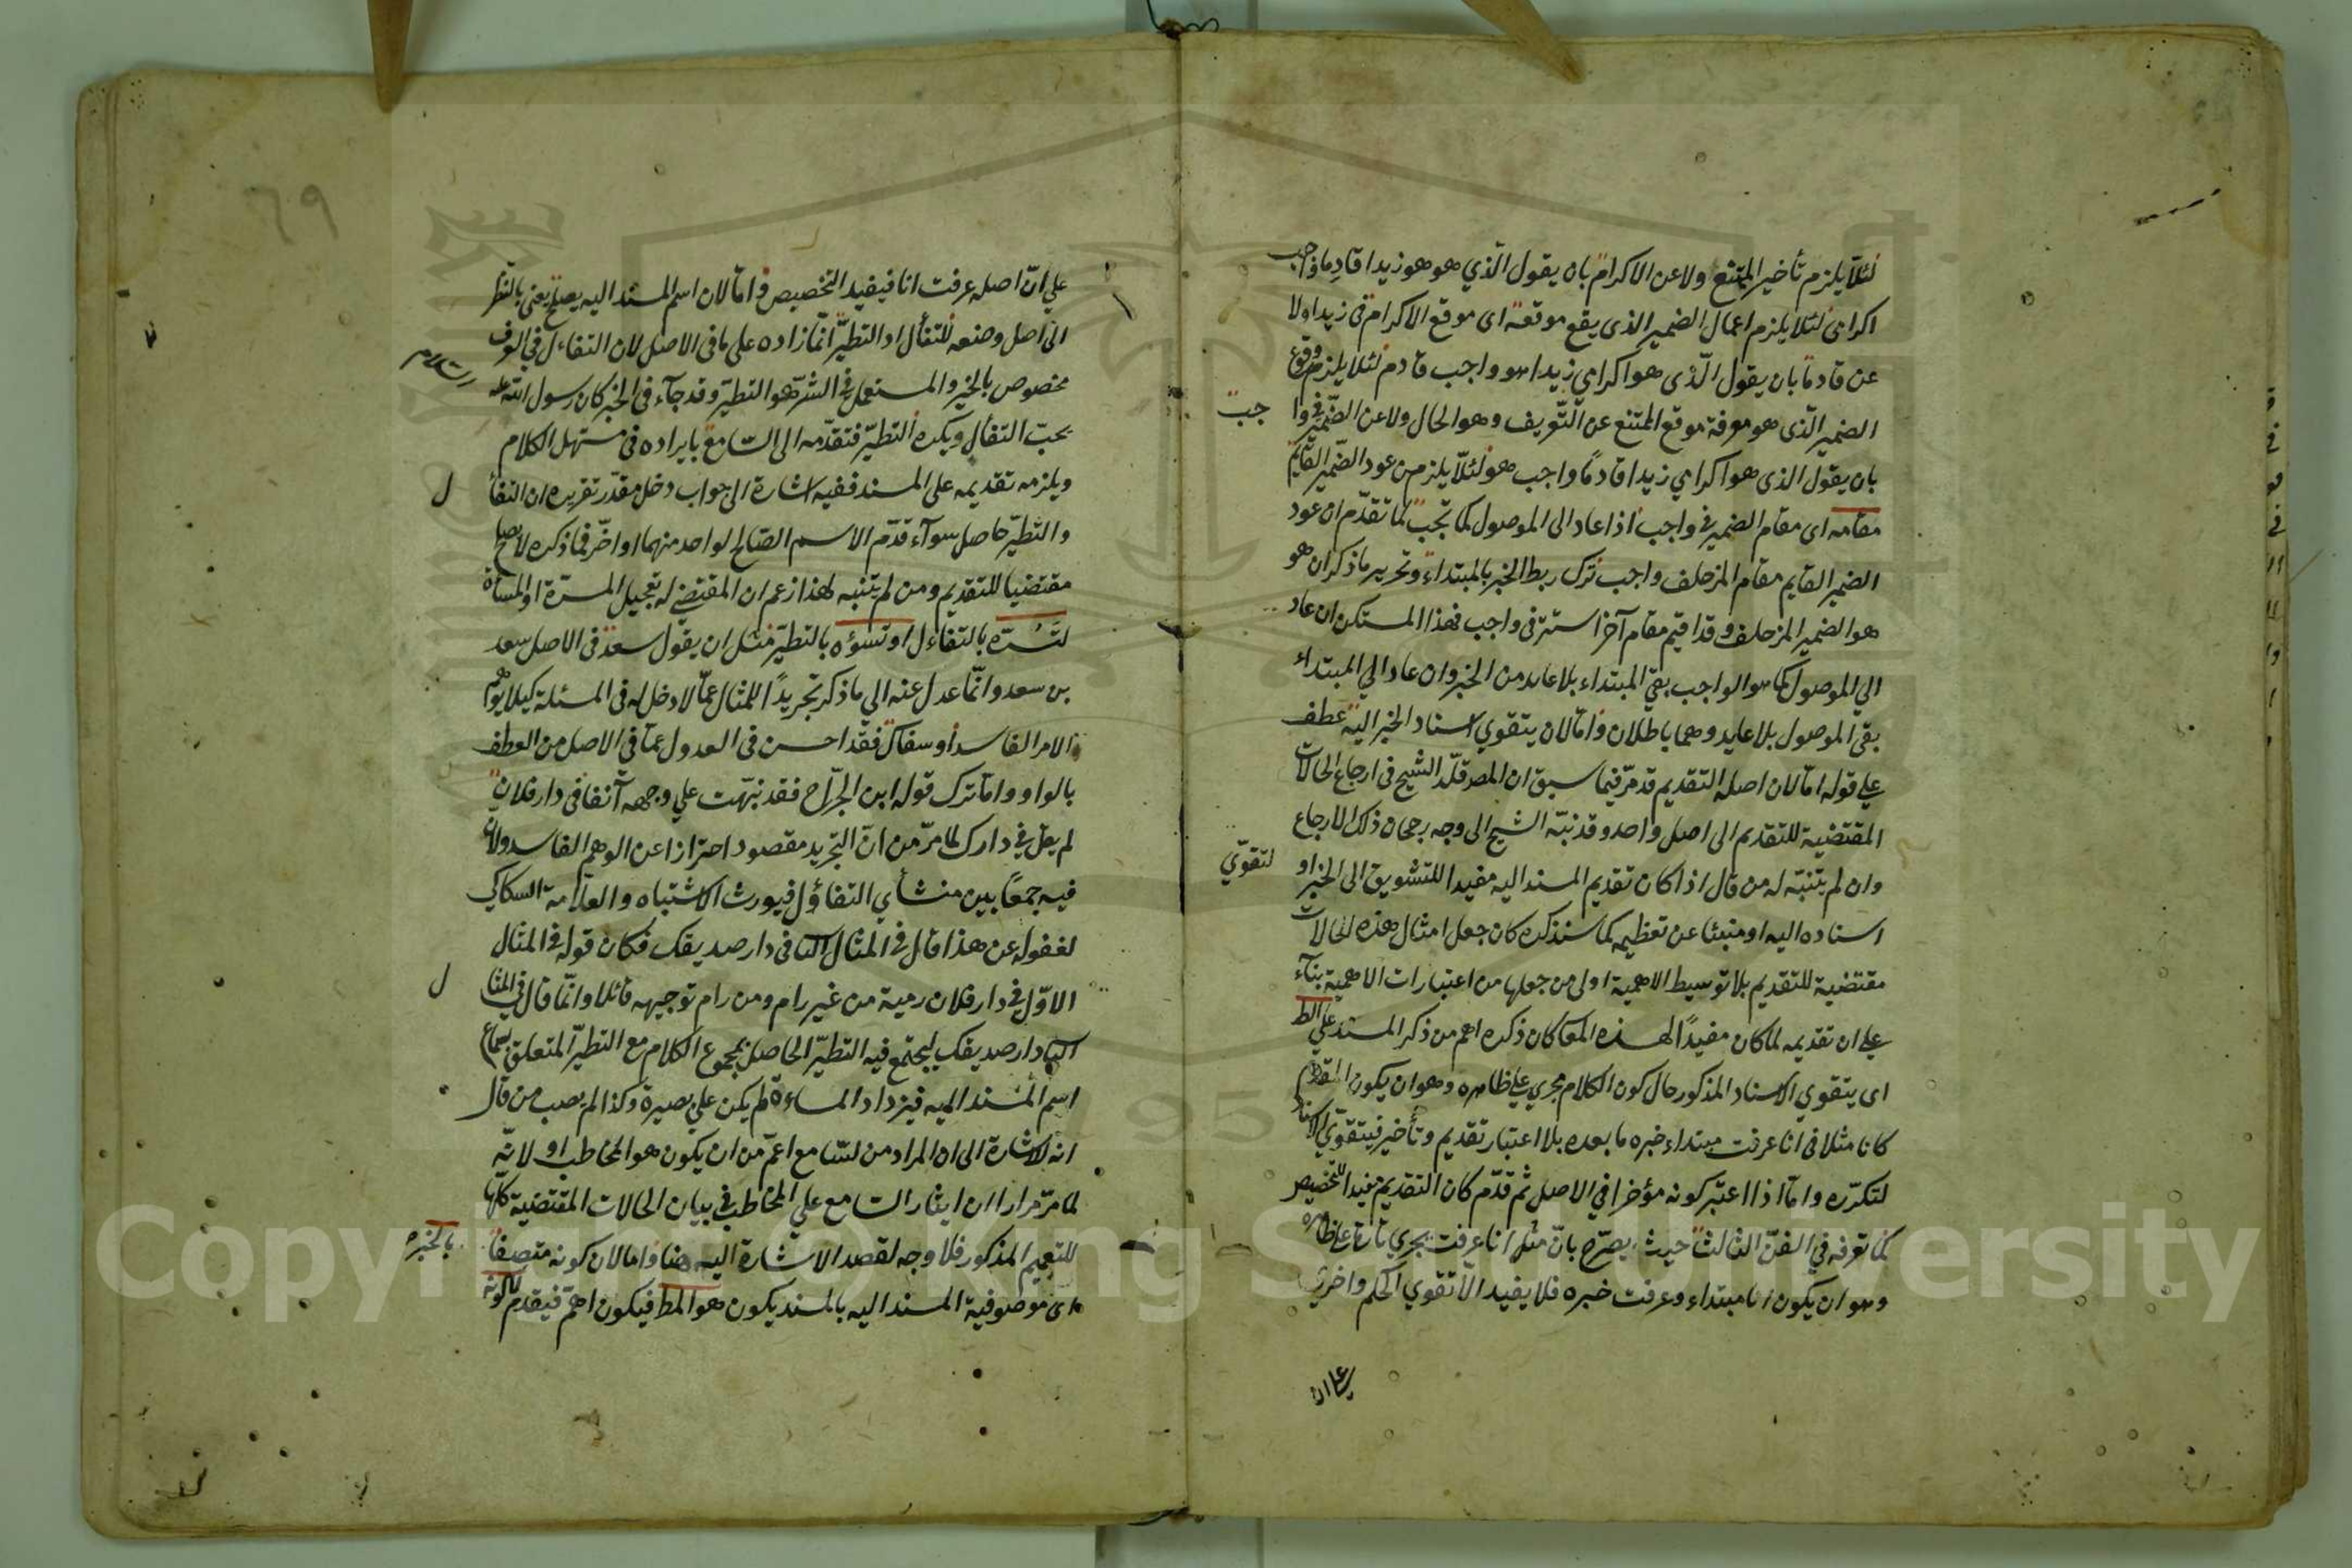 لئلا يلزم تأخير الممتنع ولا عن الاكرام بان يقول الذي هو هو زيدا قادما واجب
اكرامي لئلا يلزم اعمال الضمير الذي يقع موقعه اى موقع الاكرام في زيدا ولا
عن قادما بان يقول الذى هو اكرامي زيدا هو واجب قادم لئلا يلزم وقوع
الضمير الذى هو معرفة موقع الممتنع عن التعريف وهو الحال ولا عن الضمير في واجب
بان يقول الذى هو اكرامي زيدا قادما واجب هو لئلا يلزم من عود الضمير القايم
مقامه اى مقام الضمير في واجب اذا عاد الى الموصول كما تجب لما تقدم ان عود
الضمير القايم مقام المزحلف واجب ترك ربط الخبر بالمبتداء وتحرير ما ذكر ان هو
هو الضمير المزحلف وقد اقيم مقام آخر استتر فى واجب فهذا المستكن ان عاد
الي الموصول كما هو الواجب بقي المبتداء بلا عايد من الخبر وان عاد الي المبتداء
بقي الموصول بلا عايد وهما باطلان واما لان يتقوي اسناد الخبر اليه عطف
علي قوله اما لان اصله التقديم قد مر فيما سبق ان المص قلد الشيخ فى ارجاع الحالات
المقتضية للتقديم الى اصل واحد وقد نبه الشيخ الى وجه رجحان ذلك الارجاع
وان لم يتنبه له من قال اذا كان تقديم المسند اليه مفيدا للتشويق الى الخبر او لتقوي
اسناده اليه او منبئا عن تعظيم كما سنذكره كان جعل امثال هذه الحالات
مقتضية للتقديم بلا توسيط الاهمية اولى من جعلها من اعتبارات الاهمية بناء
علي ان تقديمه لما كان مفيدا لهذه المعا كان ذكره اهم من ذكر المسند علي الظ
اى يتقوي الاسناد المذكور حال كون الكلام مجري علي ظاهره وهو ان يكون المقدم
كانا مثلا فى انا عرفت مبتداء خبره ما بعده بلا اعتبار تقديم وتأخير فيتقوي الاسناد
لتكرره واما اذا اعتبر كونه مؤخرا في الاصل ثم قدم كان التقديم مفيدا للتخصيص
كما تعرفه في الفن الثالث حيث يصرح بان مثل انا عرفت يجري تارة علي ظاهره
وهو ان يكون انا مبتداء وعرفت خبره فلا يفيد الا تقوي الحكم واخرى
علي ان
٦٩
علي ان اصله عرفت انا فيفيد التخصيص واما لان اسم المسند اليه يصلح يعني بالنظر
الى اصل وضعه للتفأل او التطير انما زاده على ما فى الاصل لان التفاءل في العرف
مخصوص بالخير والمستعمل في الشر هو التطير وقد جآء فى الخبر كان رسول الله عليه السلام
يحب التفأل ويكره التطير فتقدمه الى السامع بايراده فى مستهل الكلام
ويلزمه تقديمه على المسند ففيه اشارة الى جواب دخل مقدر تقريره ان التفأل
والتطير حاصل سوآء قدم الاسم الصالح لواحد منهما او اخر فما ذكره لا يصلح
مقتضيا للتقديم ومن لم يتنبه لهذا زعم ان المقتضي له تعجيل المسرة او المساة
لتسره بالتفاءل او تسؤه بالتطير مثل ان يقول سعد فى الاصل سعد
بن سعد وانما عدل عنه الي ما ذكر تجريدا للمثال عما لا دخل له فى المسئلة كيلا يوهم
الامر الفاسد أو سفاك فقد احسن فى العدول عما في الاصل من العطف
بالواو واما ترك قوله ابن الجراح فقد نبهت علي وجهه آنفا فى دار فلان
لم يقل في دارك لما مر من ان التجريد مقصود احترازا عن الوهم الفاسد ولان
فيه جمعا بين منشأي التفاؤل فيورث الاشتباه والعلامة السكاكي
لغفوله عن هذا قال في المثال الثا فى دار صديقك فكان قوله في المثال
الاول في دار فلان رمية من غير رام ومن رام توجيهه قائلا وانما قال في المثال
الثا دار صديقك ليجتمع فيه التطير الحاصل بمجموع الكلام مع التطير المتعلق بسماع
اسم المسند اليه فيزداد المساءة لم يكن علي بصيرة وكذا لم يصب من قال
انه للاشارة الى ان المراد من السامع اعم من ان يكون هو المخاطب او لا لانه
لما مر مرارا ان ايثار السامع علي المخاطب في بيان الحالات المقتضية كلها
للتعميم المذكور فلا وجه لقصد الاشارة اليه هنا واما لان كونه متصفا بالخبر
اى موصوفية المسند اليه بالمسند يكون هو المط فيكون اهم فيقدم